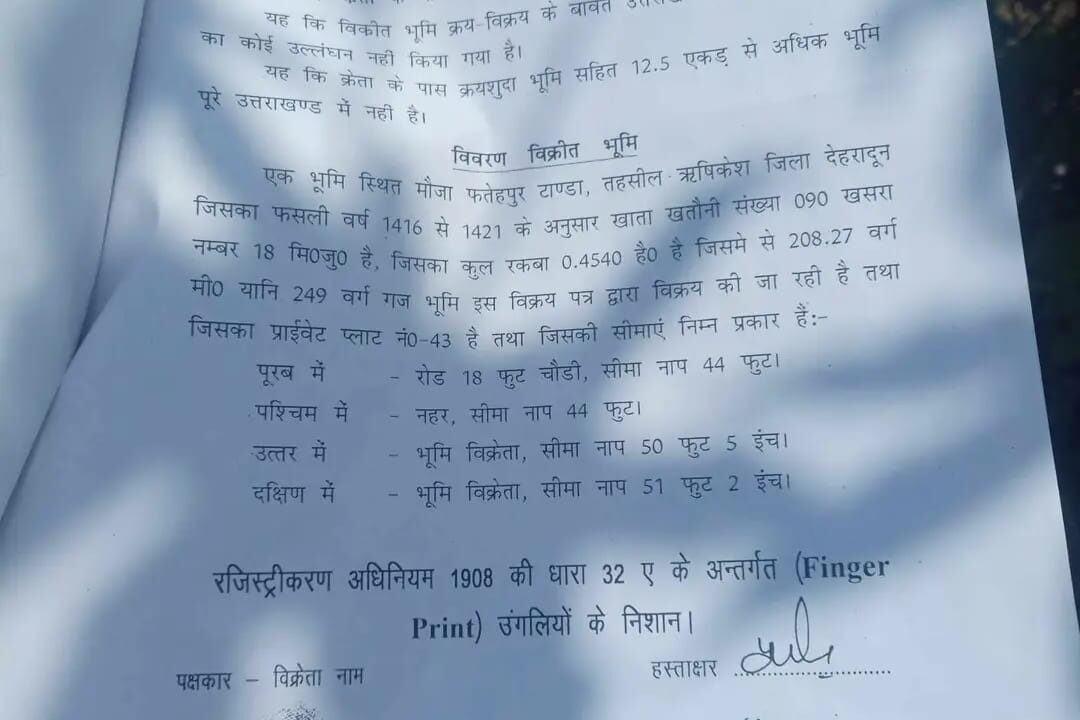 यह कि विकीत भूमि क्रय-विक्रय के बावत
का कोई उल्लंघन नही किया गया है।
यह कि क्रेता के पास क्रयशुदा भूमि सहित 12.5 एकड़ से अधिक भूमि
पूरे उत्तराखण्ड में नही है।
विवरण विक्रीत भूमि
एक भूमि स्थित मौजा फतेहपुर टाण्डा, तहसील ऋषिकेश जिला देहरादून
जिसका फसली वर्ष 1416 से 1421 के अनुसार खाता खतौनी संख्या 090 खसरा
नम्बर 18 मि0जु0 है, जिसका कुल रकबा 0.4540 है0 है जिसमे से 208.27 वर्ग
मी0 यानि 249 वर्ग गज भूमि इस विक्रय पत्र द्वारा विक्रय की जा रही है तथा
जिसका प्राईवेट प्लाट नं0-43 है तथा जिसकी सीमाएं निम्न प्रकार हैं:-
पूरब में - रोड 18 फुट चौडी, सीमा नाप 44 फुट।
पश्चिम में - नहर, सीमा नाप 44 फुट।
उत्तर में - भूमि विक्रेता, सीमा नाप 50 फुट 5 इंच।
दक्षिण में - भूमि विक्रेता, सीमा नाप 51 फुट 2 इंच।
रजिस्ट्रीकरण अधिनियम 1908 की धारा 32 ए के अन्तर्गत (Finger
Print) उंगलियों के निशान।
हस्ताक्षर ........................
पक्षकार - विक्रेता नाम